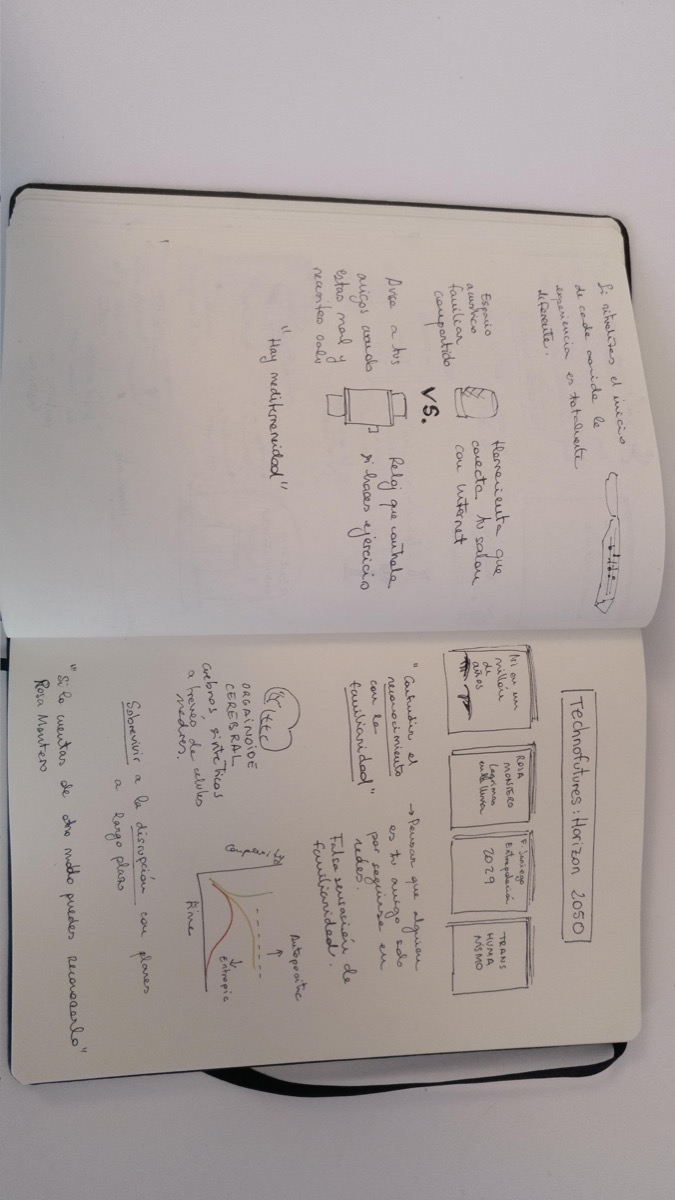 Si ritualizas el inicio
de cada comida la
experiencia es totalmente
diferente.
Espacio
acústico
familiar
compartido
VS.
Herramienta que
conecta tu salón
con internet
Avisa a tus
amigos cuando
estas mal y
necesitas
Reloj que controla
si haces ejercicio
"Hay mediterraneidad"
Technofutures: Horizon 2050
Ni en un
millón
de
años
ROSA
MONTERO
Lágrimas
en la lluvia
Extrapolación
2029
TRANS
HUMA
NISMO
"Confundir el
reconocimiento
con la
familiaridad"
→ Pensar que alguien
es tu amigo solo
por seguirse en
redes.
Falsa sensación de
familiaridad.
ORGAINOIDE
CEREBRAL
cerebros sintéticos
a través de células
madres.
Autopoiesis
↑
↓
Entropia
time
Sobrevivir a la disrupción con planes
a largo plazo
"Si lo cuentas de otro modo puedes reconocerlo"
Rosa Montero